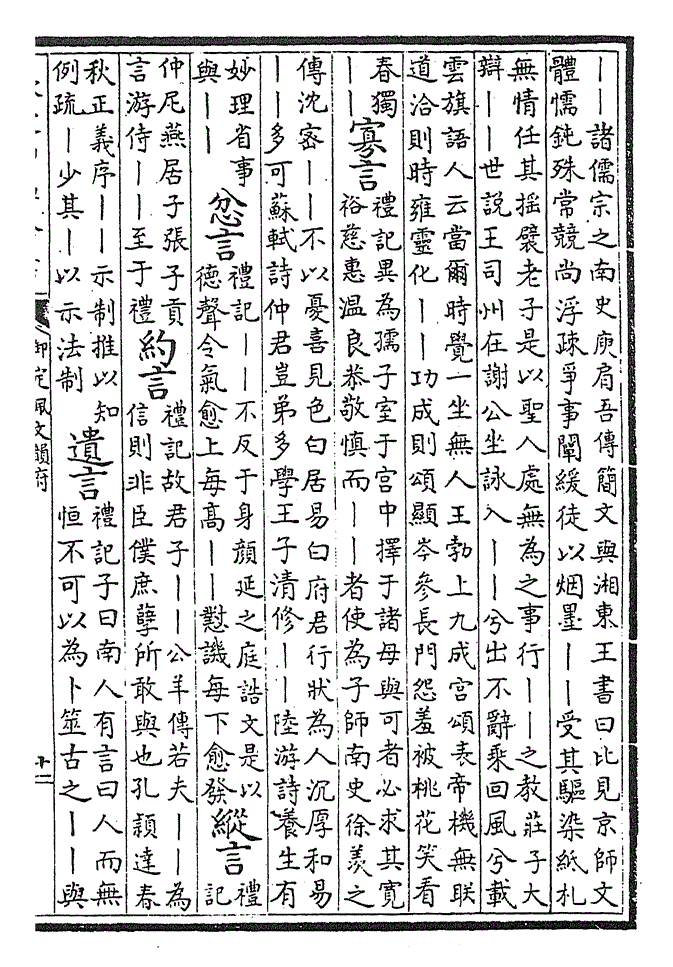 ——諸儒宗之南史庾肩吾傳簡文與湘東王書曰比見京師文
體懦鈍殊常競尚浮疎爭事闡緩徒以烟墨——受其驅染紙札
無情任其揺襞老子是以聖人處無為之事行——之教莊子大
辯——世說王司州在謝公坐詠入——兮出不辭乘回風兮載
雲旗語人云當爾時覺一坐無人王勃上九成宫頌表帝機無朕
道洽則時雍靈化——功成則頌顯岑參長門怨羞被桃花笑看
春獨
——
寡言
禮記異為孺子室于宫中擇于諸母與可者必求其寬
裕慈惠温良恭敬慎而——者使為子師南史徐羨之
傳沈宻——不以憂喜見色白居易白府君行狀為人沉厚和易
——多可蘇軾詩仲君豈弟多學王子清修——陸游詩養生有
妙理省事
與——
忿言
禮記——不反于身顔延之庭誥文是以
德聲令氣愈上每高——懟譏每下愈發
縱言
禮
記
仲尼燕居子張子貢
言游侍——至于禮
約言
禮記故君子——公羊傳若夫——為
信則非臣僕庶孽所敢與也孔穎達春
秋正義序——示制推以知
例疏—少其—以示法制
遺言
禮記子曰南人有言曰人而無
恒不可以為卜筮古之——與
御定佩文韻府
十二